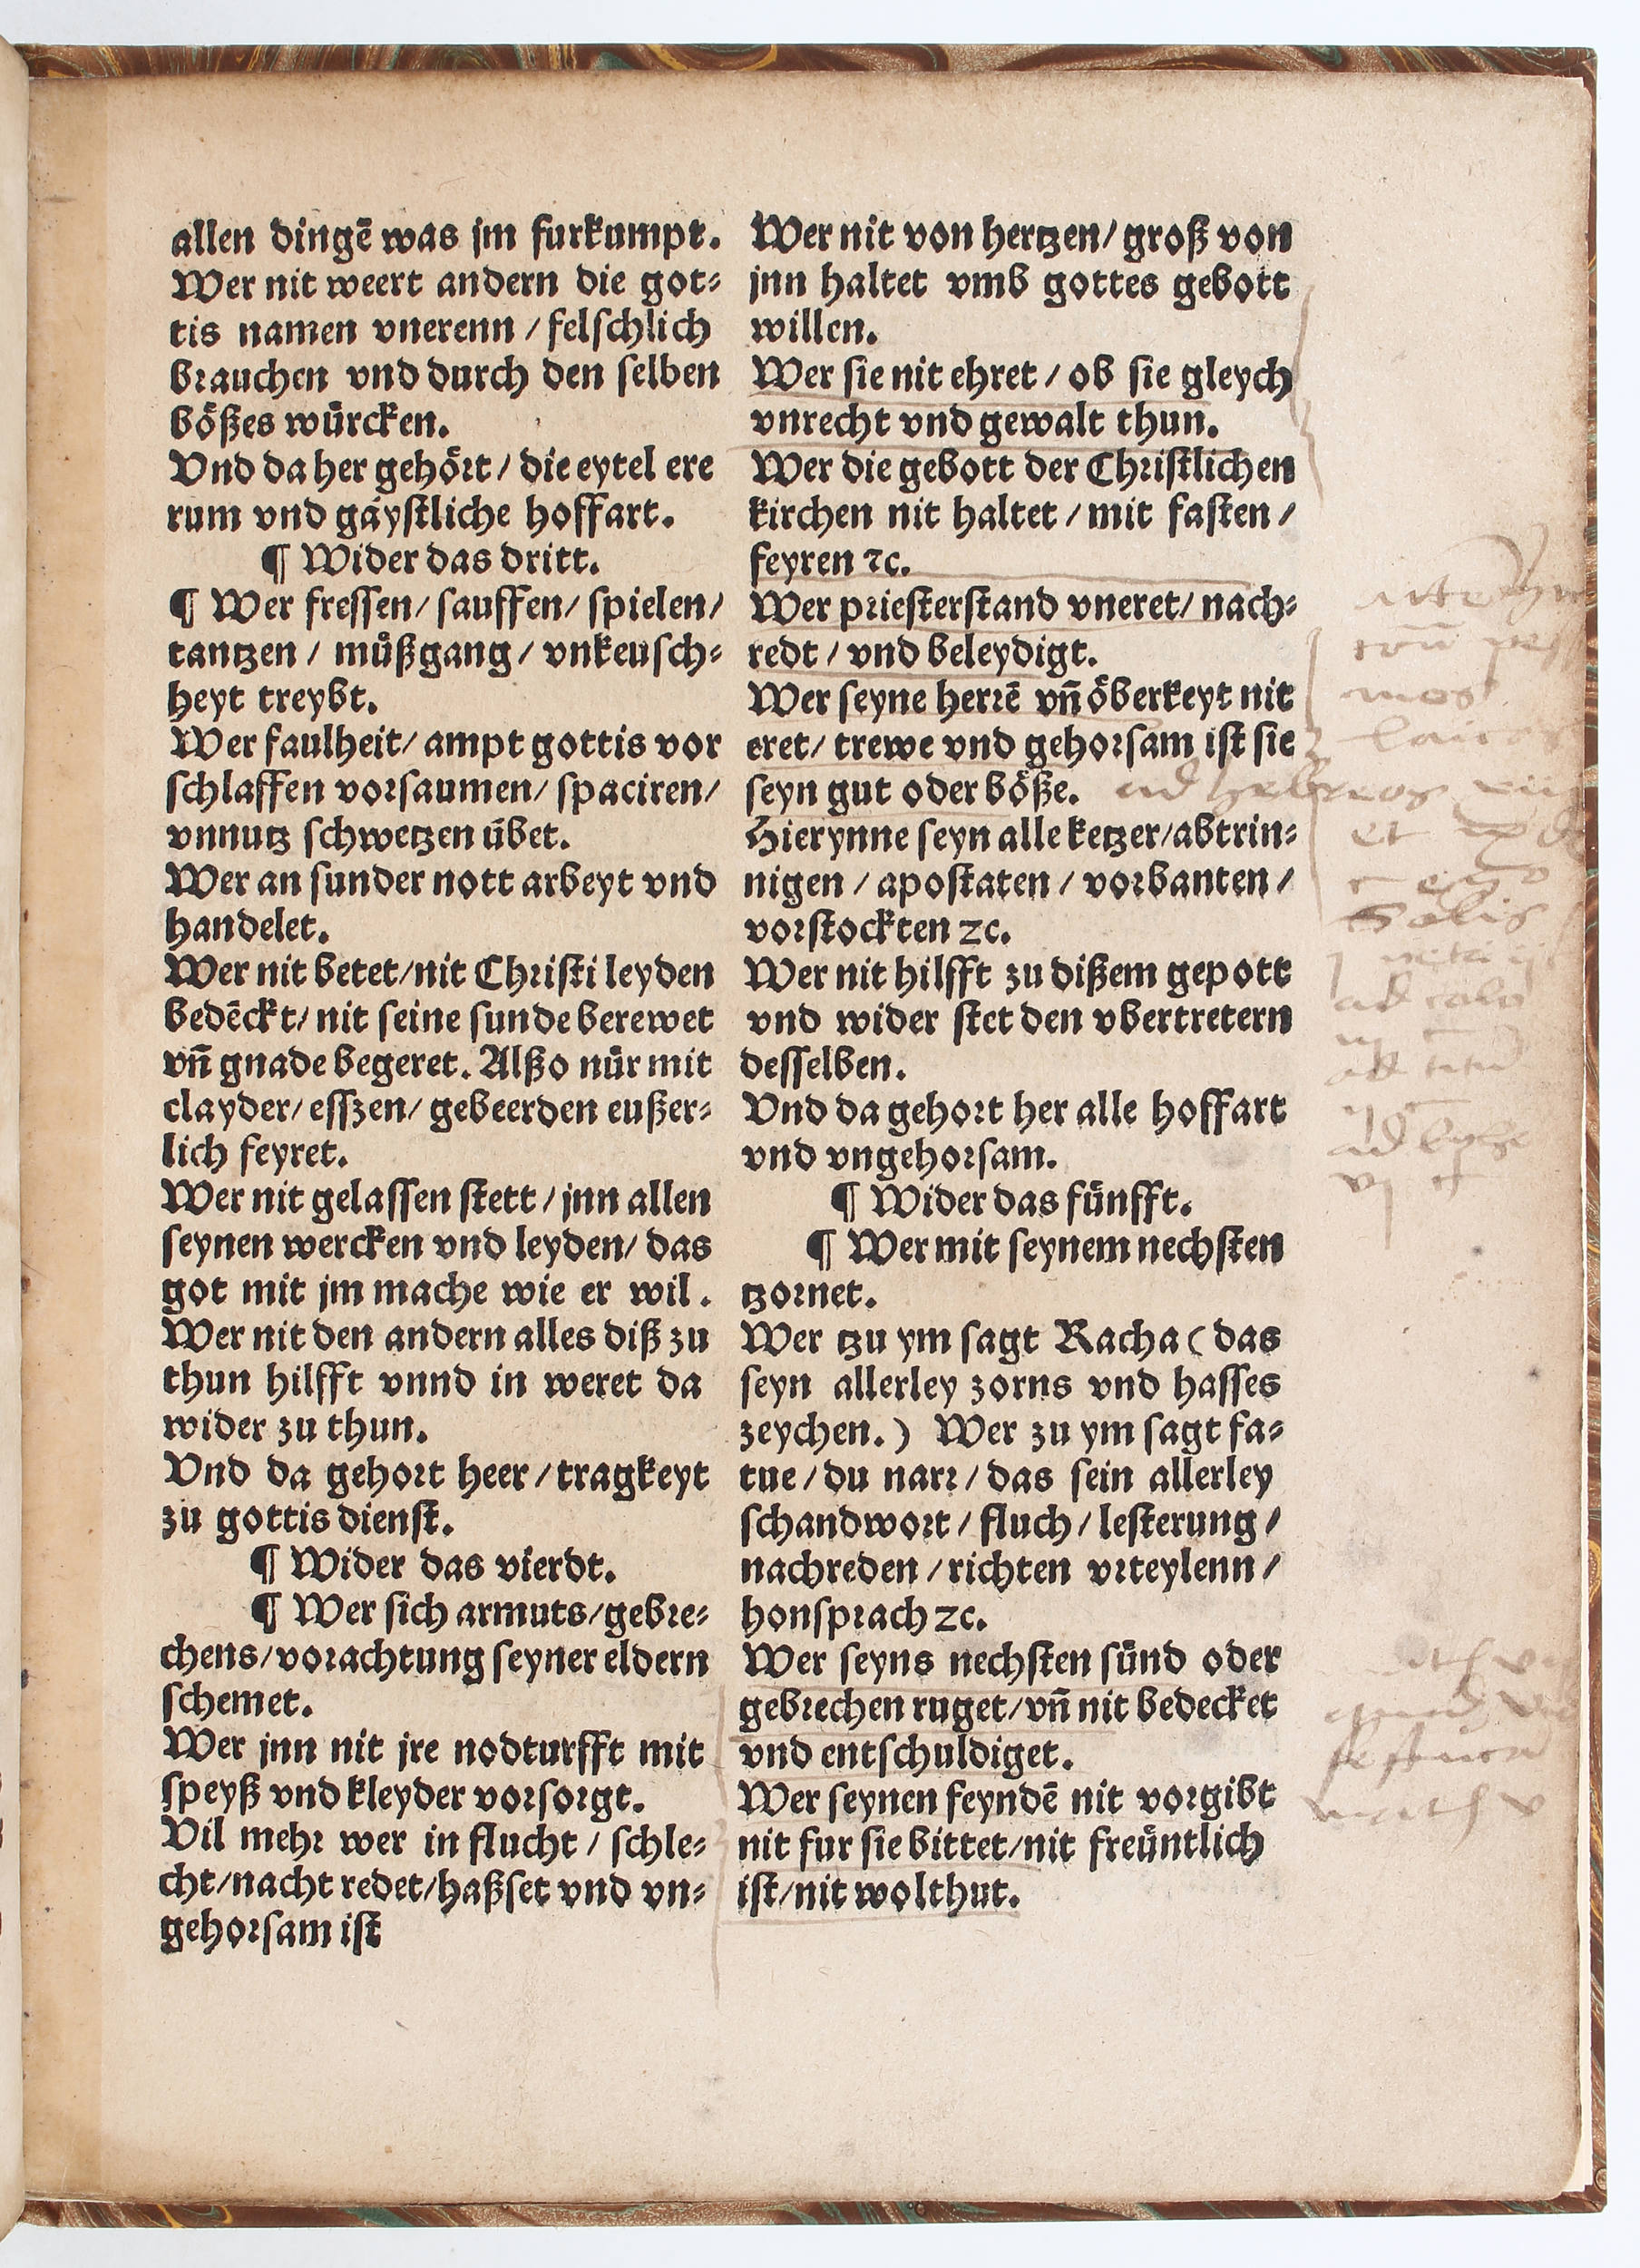 allen dingē was jm furkumpt.
Wer nit weert andern die got⸗
tis namen vnerenn / felschlich
brauchen vnd durch den selben
bößes würcken.
Vnd da her gehört / die eytel ere
rum vnd gäystliche hoffart.
¶ Wider das dritt.
¶ Wer fressen / sauffen / spielen /
tantzen / müßgang / vnkeusch⸗
heyt treybt.
Wer faulheit / ampt gottis vor
schlaffen vorsaumen / spaciren /
vnnutz schwetzen übet.
Wer an sunder nott arbeyt vnd
handelet.
Wer nit betet / nit Christi leyden
bedēckt / nit seine sunde berewet
vñ gnade begeret. Alßo nür mit
clayder / esszen / gebeerden eußer⸗
lich feyret.
Wer nit gelassen stett / jnn allen
seynen wercken vnd leyden / das
got mit jm mache wie er wil.
Wer nit den andern alles diß zu
thun hilfft vnnd in weret da
wider zu thun.
Vnd da gehort heer / tragkeyt
zu gottis dienst.
¶ Wider das vierdt.
¶ Wer sich armuts / gebre⸗
chens / vorachtung seyner eldern
schemet.
Wer jnn nit jre nodturfft mit
speyß vnd kleyder vorsorgt.
Vil mehr wer in flucht / schle⸗
cht / nacht redet / haßset vnd vn⸗
gehorsam ist
Wer nit von hertzen / groß von
jnn haltet vmb gottes gebott
willen.
Wer sie nit ehret / ob sie gleych
vnrecht vnd gewalt thun.
Wer die gebott der Christlichen
kirchen nit haltet / mit fasten /
feyren ⁊c.
Wer priesterstand vneret / nach⸗
redt / vnd beleydigt.
Wer seyne herrē vñ öberkeyt nit
eret / trewe vnd gehorsam ist sie
seyn gut oder böße. ad hebreos
Hierynne seyn alle ketzer / abtrin⸗
nigen / apostaten / vorbanten /
vorstockten ⁊c.
Wer nit hilfft zu dißem gepott
vnd wider stet den vbertretern
desselben.
Vnd da gehort her alle hoffart
vnd vngehorsam.
¶ Wider das fünfft.
¶ Wer mit seynem nechsten
tzornet.
Wer tzu ym sagt Racha ( das
seyn allerley zorns vnd hasses
zeychen. ) Wer zu ym sagt fa⸗
tue / du narr / das sein allerley
schandwort / fluch / lesterung /
nachreden / richten vrteylenn /
honsprach ⁊c.
Wer seyns nechsten sünd oder
gebrechen ruget / vñ nit bedecket
vnd entschuldiget.
Wer seynen feyndē nit vorgibt
nit fur sie bittet / nit freüntlich
ist / nit wolthut.